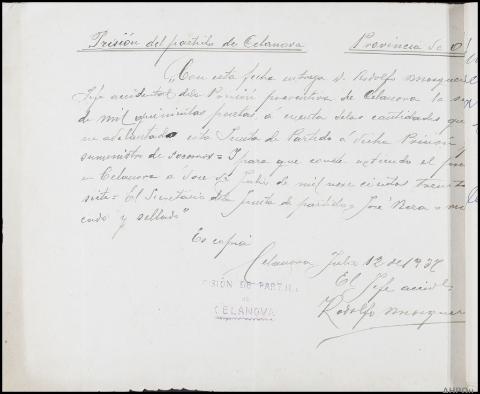 Prisión del partido de Celanova Provincia de O
"Con esta fecha entrega D. Rodolfo Mosquer
Jefe accidental de la Prisión preventiva de Celanova la
de mil quinientas pesetas, a cuenta de las cantidades que
adelantado esta Junta de Partido á dicha Prisión
suministro de socorros = Y para que conste extiendo el
en Celanova a doce de Julio de mil novecientos treinta
siete = El Secretario de la Junta de partido = José
cado y sellado"
Es copia
Celanova Julio 12 de 1937
El Jefe accidtl
Rodolfo Mosquer
PRISIÓN DE PARTIDO
DE
CELANOVA
AHPOu